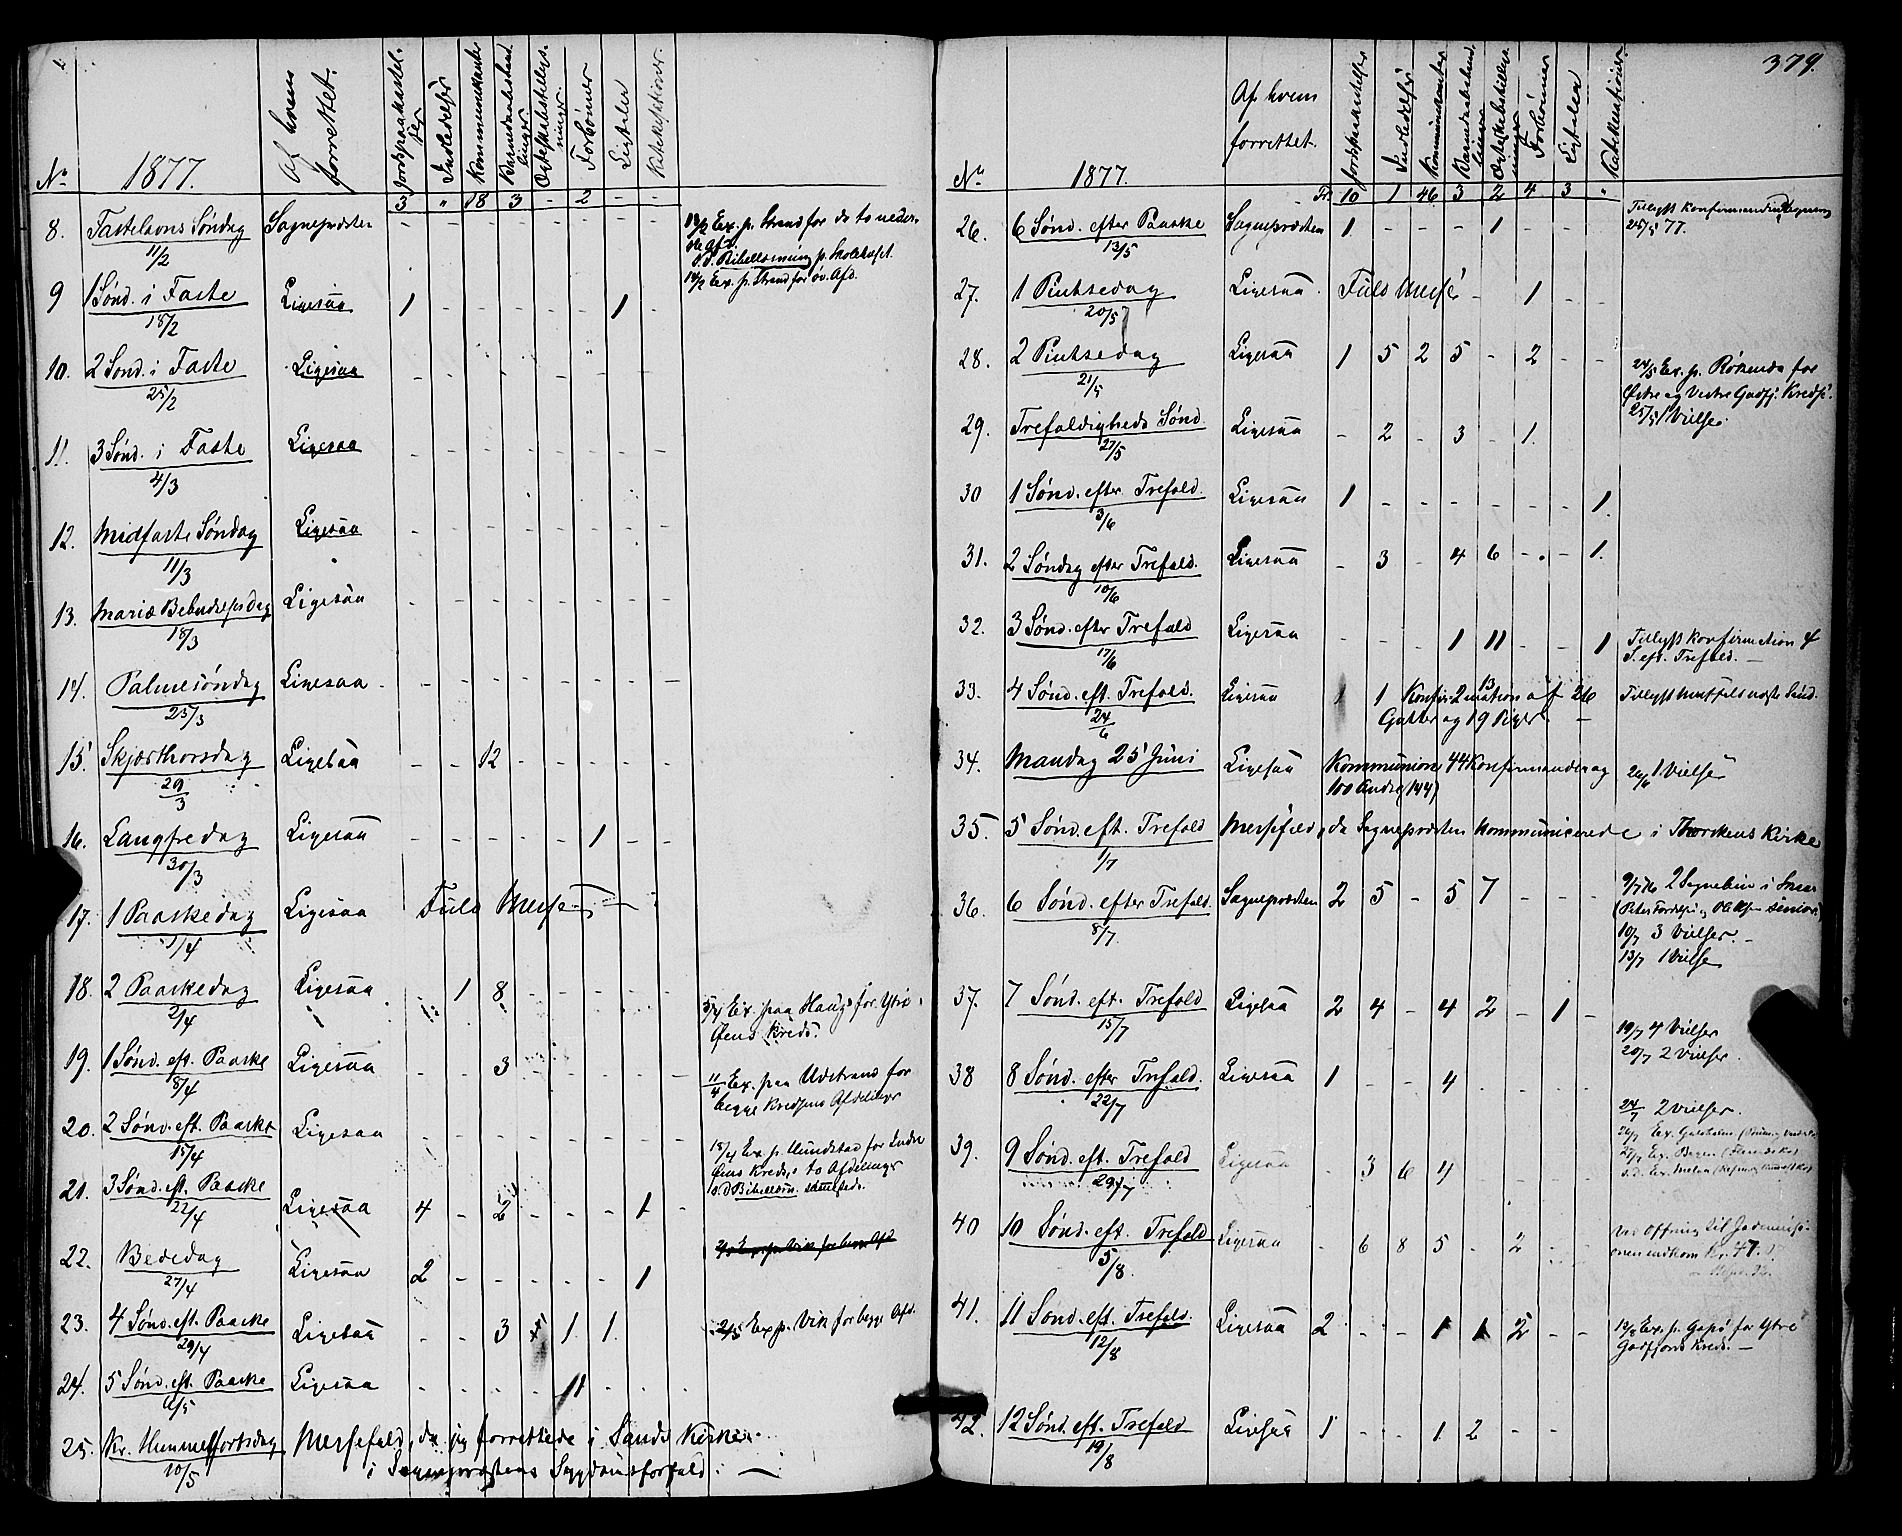 No 1877. Af hvem forrettet. Jordspaakastelser Indledelser Kommunikanter Barnedaabshandlinger Ægteskabstillysninger Forbønner Ligtaler Katekisationer
3 " 18 3 - 2 - -
8. Fastelavns Søndag 11/2 Sognepræsten - - - - - - - -
Ex. p. Strand for de to neder-
ste Afd.
s.d. Bibellæsning p. Skolehuset.
Ex. p. Strand for øv. Afd.
9 1 Sønd. i Faste 18/2 Ligesaa 1 - - - - - 1 -
10. 2 Sønd. i Faste 25/2 Ligesaa - - - - - - - -
11. 3 Sønd. i Faste 4/3 Ligesaa - - - - - - - -
12. Midfaste Søndag 11/3 Ligesaa - - - - - - - -
13. Mariæ Bebudelsesdag 18/3 Ligesaa - - - - - - - -
14. Palmesøndag 25/3 Ligesaa - - - - - - - -
15. Skjærthorsdag 29/3 Ligesaa - - 12 - - - - -
16. Langfredag 30/3 Ligesaa - - - - - 1 - -
17. 1 Paaskedag 1/4 Ligesaa Fuld Messe
18. 2 Paaskedag 2/4 Ligesaa - 1 8 - - - - -
5/4 Ex. paa Haug for Ytre
Øens Kreds.
19. 1 Sønd. eft. Paaske 8/4 Ligesaa - - 3 - - - - -
11/4 Ex. paa Udstrand for
begge Kredsens Afdelinger
20. 2 Sønd. eft. Paaske 15/4 Ligesaa - - - - - - - -
18/4 Ex. p. Hundstad for Indre
Øens Kreds, to Afdelinger
s.d. Bibellæsn. sammesteds.
21. 3 Sønd. eft. Paaske 22/4 Ligesaa 4 - 2 - - - 1 -
22. Bededag 27/4 Ligesaa 2 - - - - - 1
23. 4 Sønd. eft. Paaske 29/4 Ligesaa - - 3 1 1.
2/5 Ex. p. Vik for begge Afd.
24. 5 Sønd. eft. Paaske 6/5 Ligesaa - - - - 11 - - -
25. Kr. Himmelfartsdag 10/5 Messefald, da jeg forrettede i Sands Kirke
i Sognepræstens Sygdomsforfald. —
379.
No 1877. Af hvem forrettet. Jordspaakastelser Indledelser Kommunikanter Barnedaabshandlinger Ægteskabstillysninger Forbønner Ligtaler Katekisationer
Fr. 10 1 46 3 2 4 3 "
26. 6 Sønd. efter Paaske 13/5 Sognepræsten 1. - - - 1 - - -
25/5 77.
27. 1 Pintsedag 20/5 Ligesaa. Fuld Messe - 1 - -
28. 2 Pintsedag 21/5 Ligesaa 1 5 2 5 - 2 - -
24/5 Ex. p. Røkenes for
Østre og Vestre Godfj. Kredse.
25/5 1 Vielse.
29. Trefoldigheds Sønd. 27/5 Ligesaa - 2 - 3 - 1. - -
30 1 Sønd. efter Trefold. 3/6 Ligesaa 1 - - - - - - 1.
31. 2 Søndag efter Trefold. 10/6 Ligesaa - 3 - 4 6 - - - 1.
32. 3 Sønd. efter Trefold 17/6 Ligesaa - - - 1 11 - - 1
Tillyst Konfirmation 4
S. eft. Trefold. —
33. 4 Sønd. eft. Trefold. 24/6 Ligesaa 1 1 2 13 Konfirmation af 26
Gutter og 19 Piger. —
Tillyst Messefald næste Sønd.
34. Mandag 25 Juni Ligesaa Kommunion 44 Konfirmander og
100 Andre (144)
26/6 1 Vielse
35. 5 Sønd. eft. Trefold 1/7 Messefald, da Sognepræsten kommunicerede i Throndenes Kirke
36. 6 Sønd. efter Trefold. 8/7. Sognepræsten 2 5 - 5 7 - - -
10/7 3 Vielser. —
13/7 1 Vielse
37. 7 Sønd. eft. Trefold 15/7 Ligesaa 2 4 - 4 2 - 1 -
19/7 4 Vielser
20/7 2 Vielser.
38 8 Sønd. efter Trefold. 22/7 Ligesaa 1 - - 4 - - - -
24/7 2 Vielser.
39. 9 Sønd. eft. Trefold 29/7 Ligesaa - 3 6 4 - - - -
40 10 Sønd. eft. Trefold 5/8. Ligesaa - 6 8 5 - 2 - -
Ved Offring til
indkom Kr. 47.
41. 11 Sønd. eft. Trefold. 12/8 Ligesaa 2 - - 1 1 2 - -
Ex. p. for Ytre
Godfjords Kreds. —
42. 12 Sønd. eft. Trefold 19/8 Ligesaa 1 - - 1 2 - - -